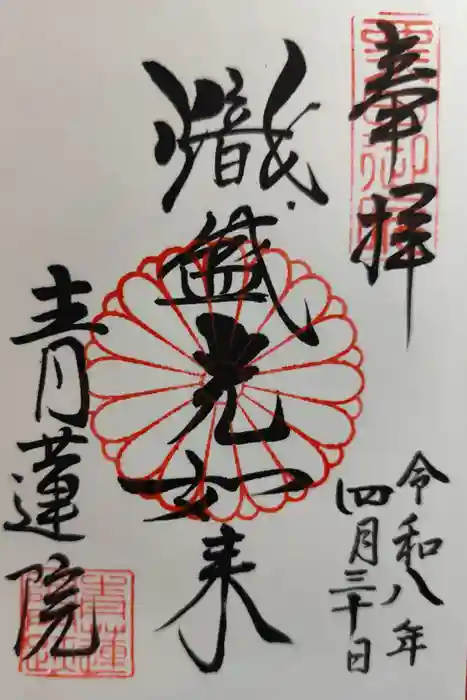 奉拝
令和八年
四月三十日
熾盛光如来
青蓮院